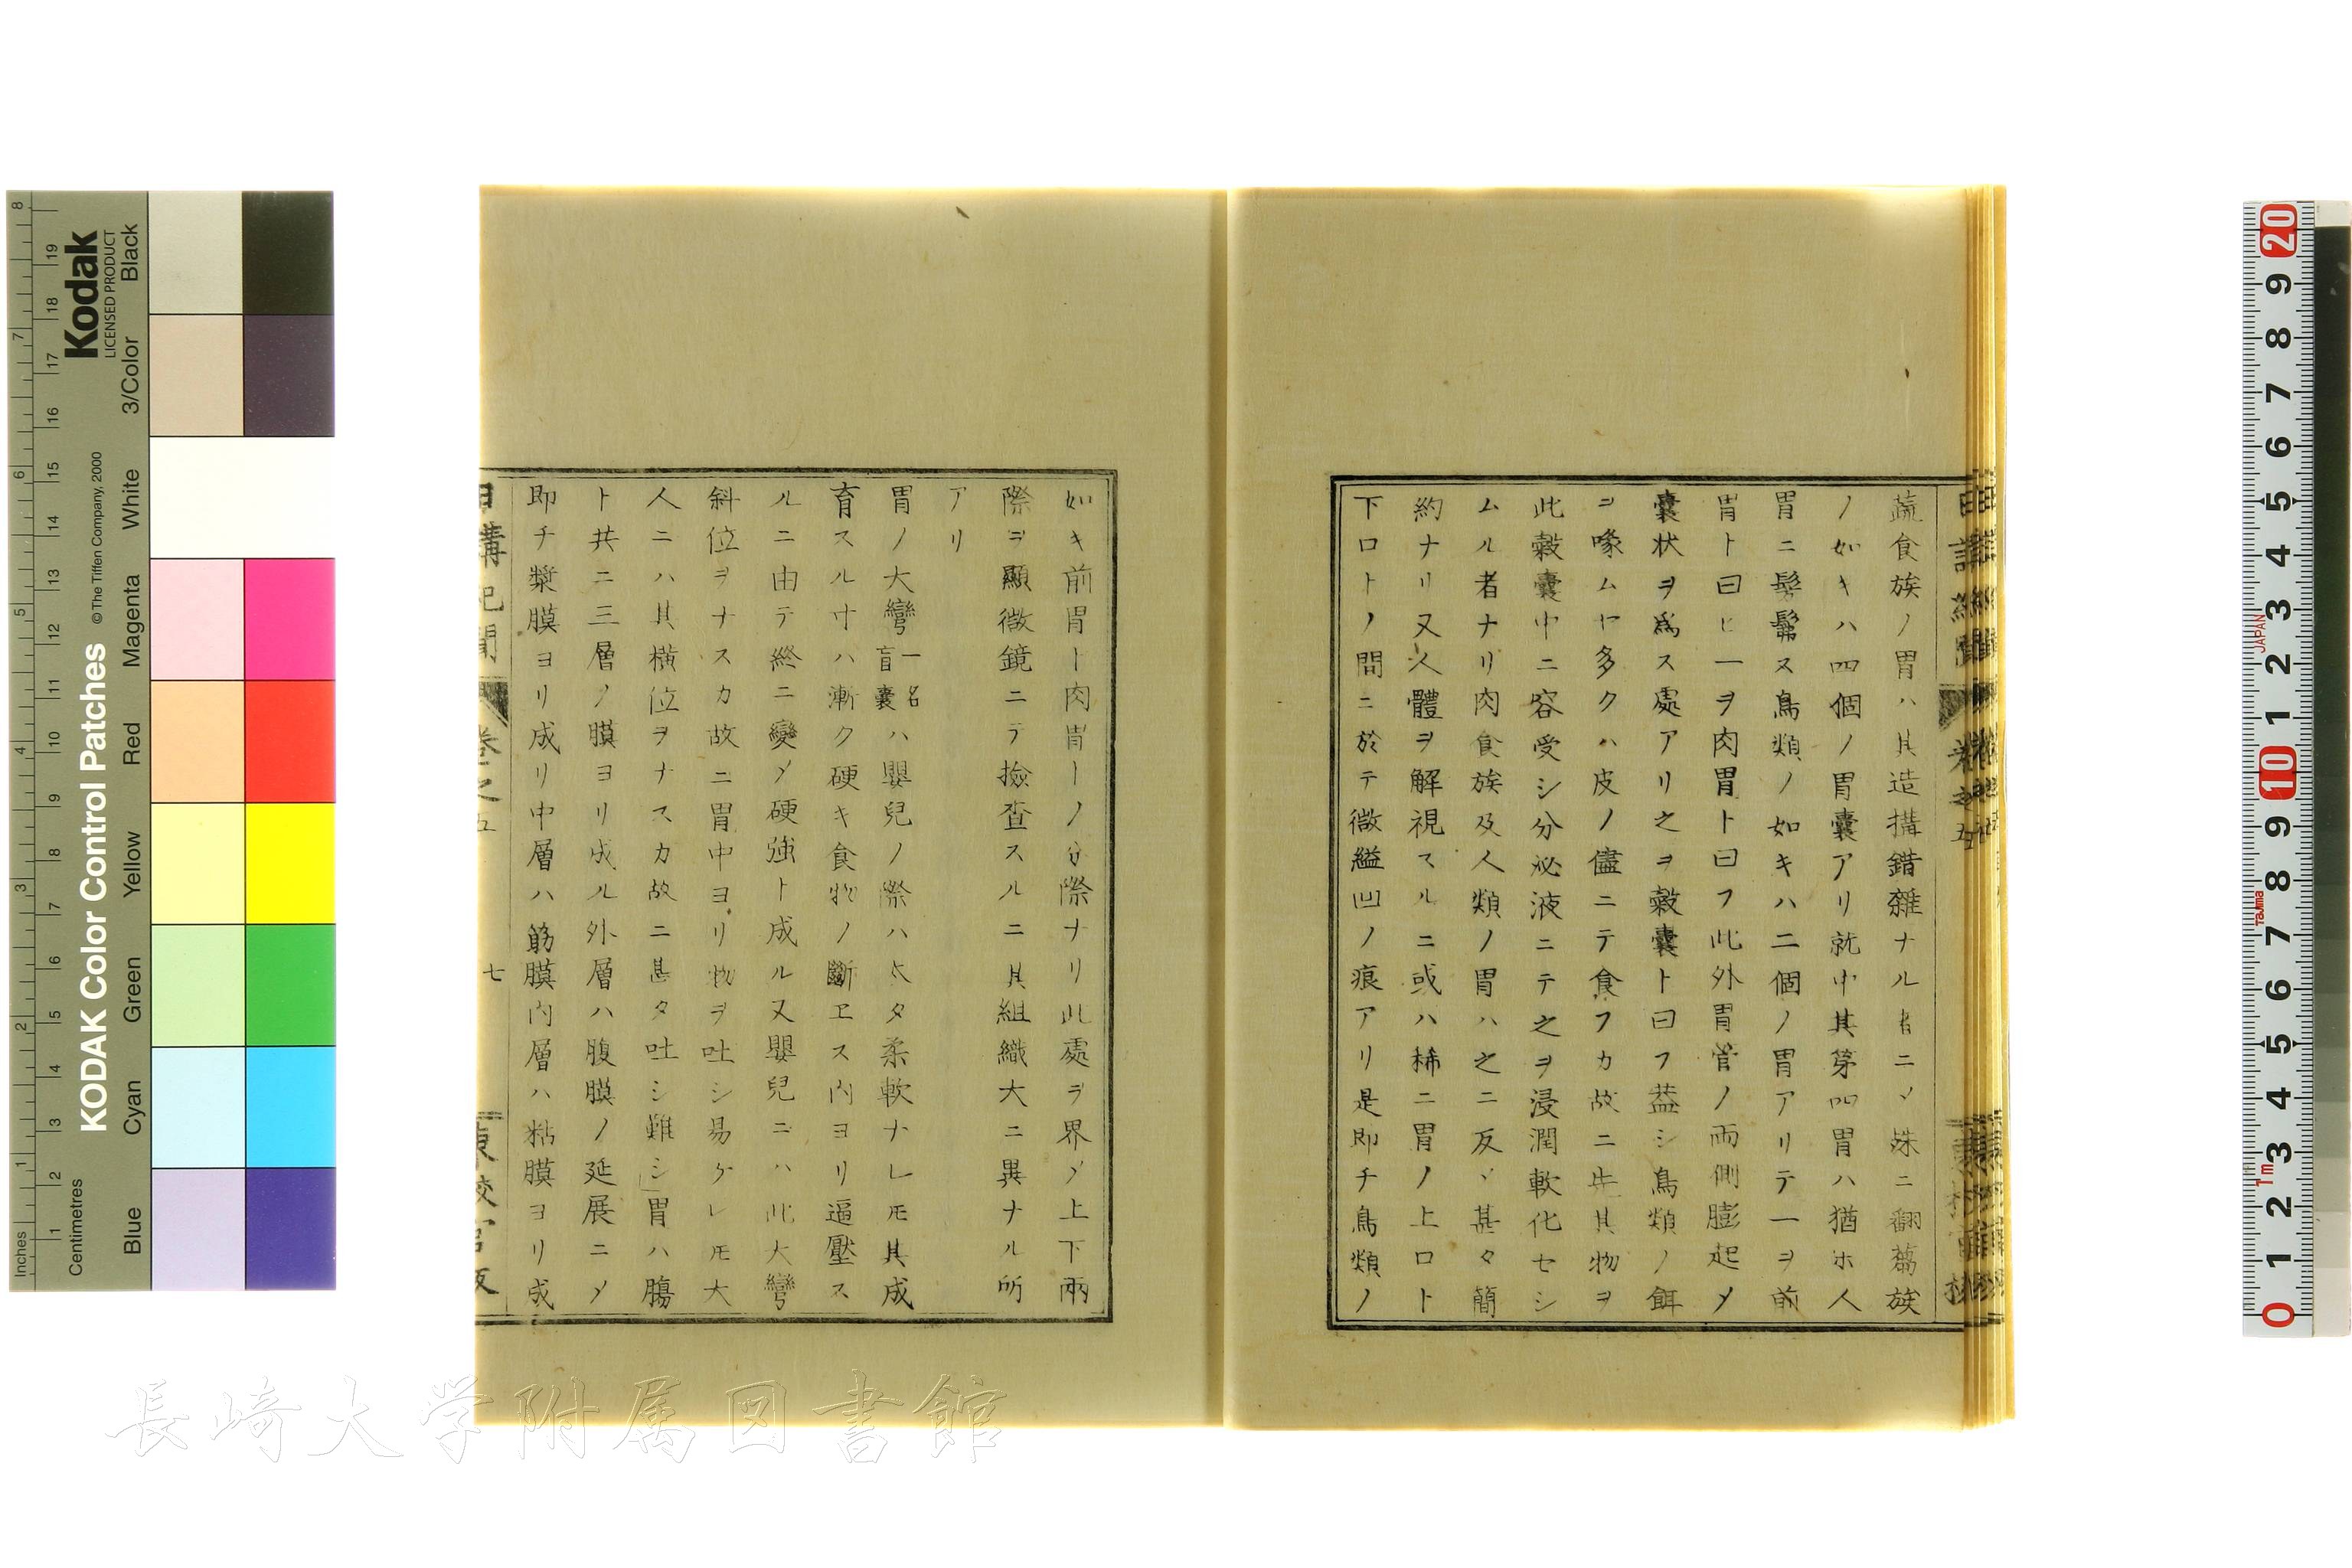 蔬食族ノ胃ハ其造搆錯雜ナル者ニメ殊ニ翻蒭族
ノ如キハ四個ノ胃囊アリ就中其第四胃ハ猶ホ人
胃ニ髣髴ス鳥類ノ如キハ二個ノ胃アリテ一ヲ前
胃ト曰ヒ一ヲ肉胃ト曰フ此外胃管ノ兩側膨起メ
囊状ヲ爲ス處アリ之ヲ穀囊ト曰フ葢シ鳥類ノ餌
ヲ喙ムヤ多クハ皮ノ儘ニテ食フカ故ニ先其物ヲ
此穀囊中ニ容受シ分泌液ニテ之ヲ浸潤軟化セシ
ムル者ナリ肉食族及人類ノ胃ハ之ニ反メ甚タ簡
約ナリ又人體ヲ解視スルニ或ハ稀ニ胃ノ上口ト
下口トノ間ニ於テ微縊凹ノ痕アリ是即チ鳥類ノ
如キ前胃ト肉胃トノ分際ナリ此處ヲ界メ上下兩
際ヲ顯微鏡ニテ撿査スルニ其組織大ニ異ナル所
アリ
胃ノ大彎一名盲囊ハ嬰兒ノ際ハ太タ柔軟ナレ𪜈其成
育スル寸ハ漸ク硬キ食物ノ斷ヱス内ヨリ逼壓ス
ルニ由テ終ニ變メ硬強ト成ル又嬰兒ニハ此大彎
斜位ヲナスカ故ニ胃中ヨリ物ヲ吐シ易ケレ𪜈大
人ニハ其横位ヲナスカ故ニ甚タ吐シ難シ胃ハ膓
ト共ニ三層ノ膜ヨリ成ル外層ハ腹膜ノ延展ニメ
即チ漿膜ヨリ成リ中層ハ筋膜内層ハ粘膜ヨリ成
日講紀聞 卷之五 七
KODAK Color Control Patches
© The Tiffen Company, 2000
Kodak
LICENSED PRODUCT
Inches
Centimetres
Blue
Cyan
Green
Yellow
Red
Magenta
White
3/Color
Black
長崎大学附属図書館
JAPAN
Tajima
1m